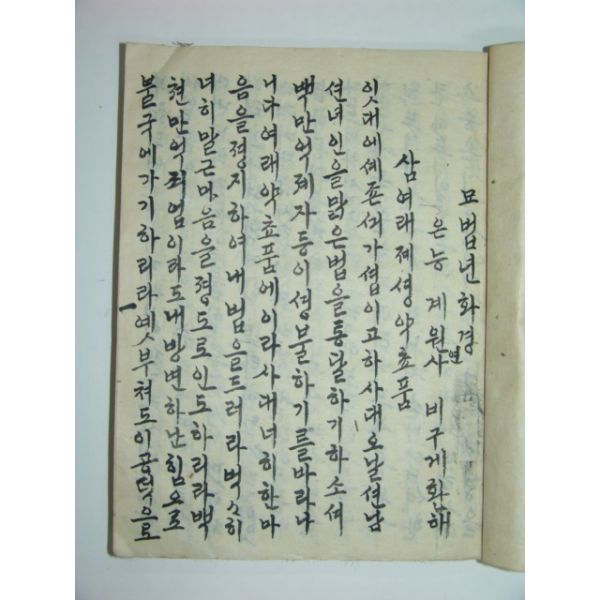 묘법년화경
온능 계원사 비구게환해
연
삼여래제셩약쵸품
잇대에셰존셔가셥이고하사대오날션남
션녀인을맑은법을통달하기하소셔
백만억제자등이셩불하기를바라나
니다여래약쵸품에이라사대너히한마
음을졍지하여내법을드러라벅스히
너히말근마음을졍도로인도하리라백
쳔만억죄업이라도내방변하난힘으로
불국에가기하리라옛부쳐도이공덕으로